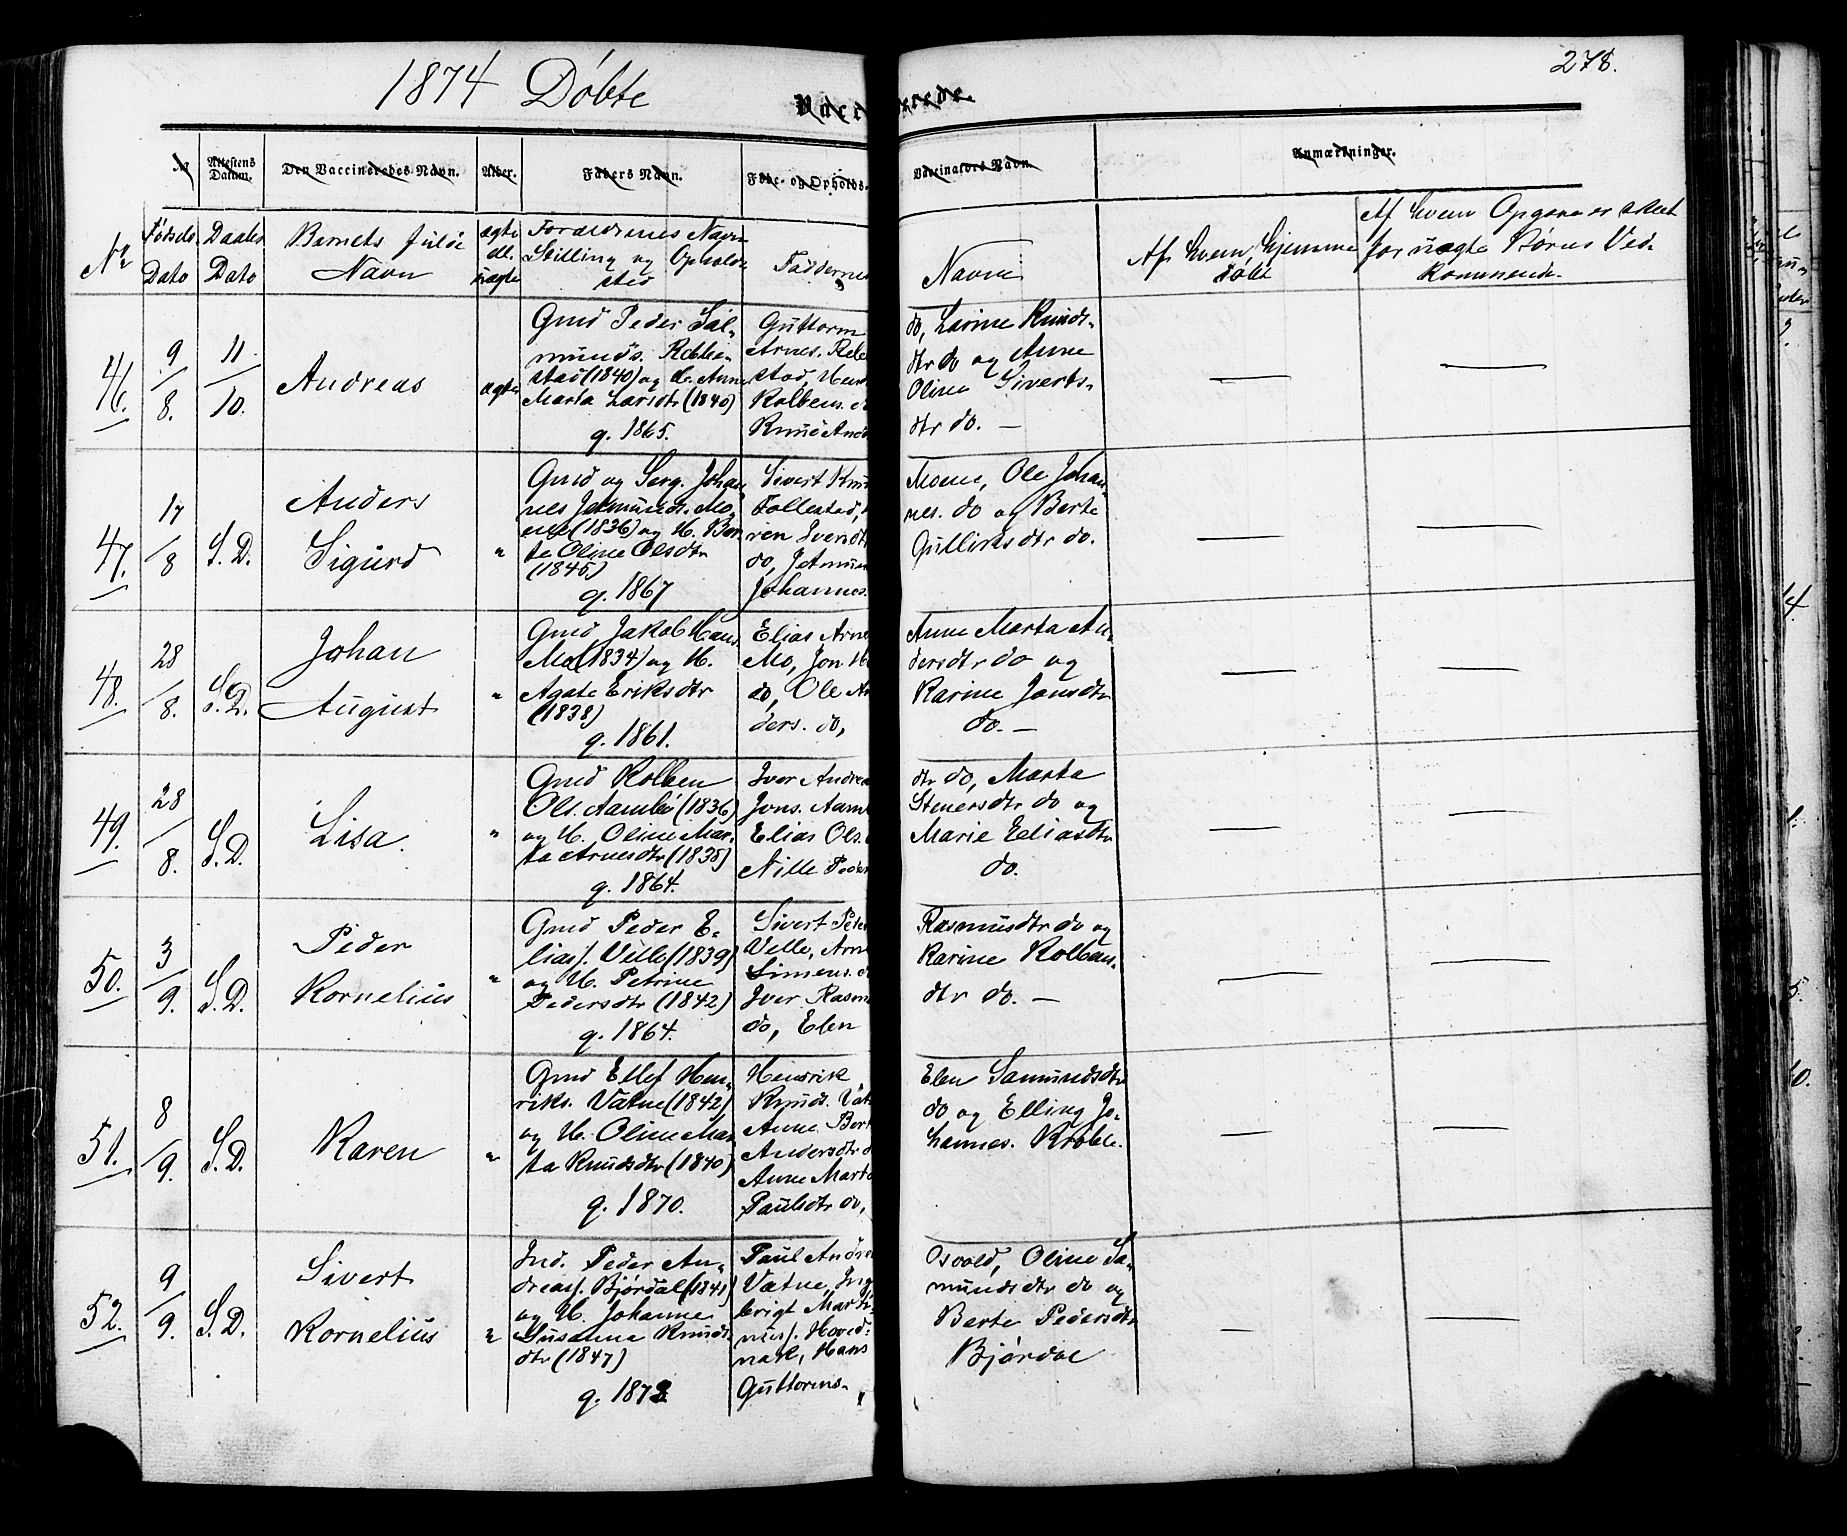 1874 Döbte
278.
Vacc
rede.
№
Attestens Datum.
Den Vaccineredes Navn.
Alder.
Faders Navn.
Føde- og Opholds-
Vaccinators Navn.
Anmærkninger.
№
Fødsels Dato
Daabs Dato
Barnets fulde Navn
ægte el. uægte
Forældrenes Navn Stilling og Opholds sted
Faddernes
Navne
Af hvem hjemme döbt
Af hvem Opgave er skeet for uægte Börns Ved kommende
46.
9/8.
11/10.
Andreas
ægte
Gmd Peder Sal-
munds. Rebbe-
stad (1840) og H. Anne
Marta Larsdtr (1840)
g. 1865.
Guttorm
Arnes.
stad,
Kolbens.
Knud And
do, Larine Knuds-
dtr do og Anne
Oline Siverts-
dtr do. —
47.
17/8
S. D.
Anders
Sigurd
"
Gmd og Serg. Johan
nes Jetmunds. Mo-
ene (1836) og H. Ber
te Oline Olsdtr
(1845)
g. 1867
Sivert Knu
Follestad,
ren Iversdt
do, Jetmun
Johannes.
Moene, Ole Johan-
nes. do og Berte
Gulliksdtr do.
48.
28/8.
S. D.
Johan
August
"
Gmd Jakob Hans
Mo (1834) og H.
Agate Eriksdtr
(1838)
g. 1861.
Elias Arne
Mo, Jon
do, Ole An
ders. do,
Anne Marta An-
dersdtr do og
Karine Jonsdtr
do. —
49.
28/8.
S. D.
Lisa.
"
Gmd Kolben
Ols. Aambö (1836)
og H. Oline Mar-
ta Arnesdtr (1838)
g. 1864.
Iver Andrea
Jons. Aam
Elias Ols.
Nille Peder
dtr do, Marta
Steuersdtr do og
Marie Eliasdtr
do.
50.
3/9.
S. D.
Peder
Kornelius
"
Gmd Peder E-
lias. Velle (1839)
og H. Petrine
Pedersdtr (1842)
g. 1864.
Sivert Peter
Velle, Arn
Simens. d
Iver Rasm
do, Elen
Rasmusdtr do og
Karine Kolbens-
dtr do. —
51.
8/9.
S. D.
Karen
"
Gmd Ellef Hen-
riks. Vatne (1842)
og H. Oline Mar
ta Knudsdtr (1840)
g. 1870.
Henrik
Knuds. Vat
Anne Bert
Andersdtr d
Anne Marta
Paulsdtr do,
Elen Samundsdtr
do og Elling Jo-
hannes. Krøvle.
52.
9/9.
S. D.
Sivert
Kornelius
"
Ind. Peder An-
dreas. Bjørdal (1841)
og H. Johanne
Susanna Knuds
dtr (1847)
g. 1873
Paul Andre
Vatne, Ing
brigt Marti-
nus. Hoved-
nak, Hans
Guttorms-
Osvold, Oline Sa-
mundsdtr do og
Berte Pedersdtr
Bjørdal